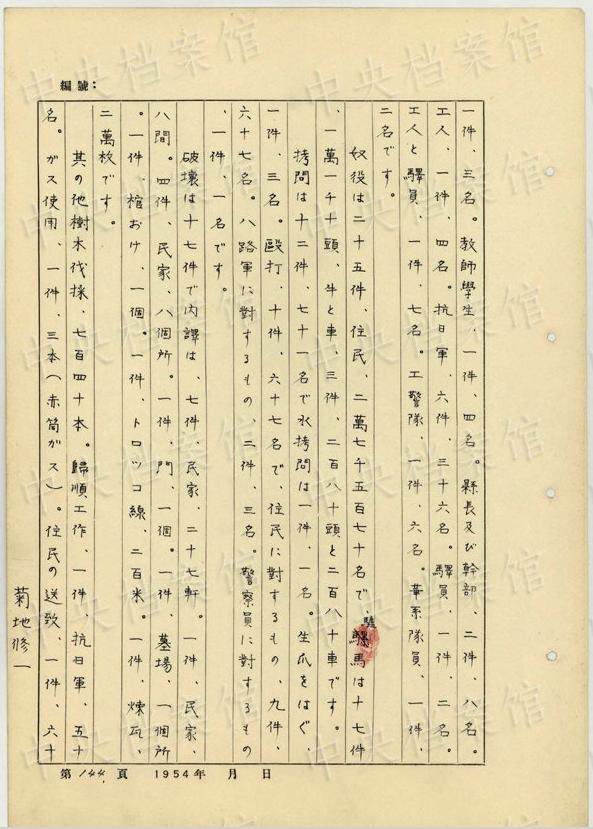 編號:
一件、三名。教師學生、一件、四名。縣長及び幹部、二件、八名。
工人、一件、四名。抗日軍、六件、三十六名。驛員、一件、二名。
工人と驛員、一件、七名。工警隊、一件、六名。華系隊員、一件、
二名です。
奴役は二十五件、住民、二萬七千五百七十名で、騾馬は十七件
、一萬一千十頭、牛と車、三件、二百八十頭と二百八十車です。
拷問は十二件、七十一名で水拷問は一件、一名。生爪をはぐ、
一件、三名。毆打、十件、六十七名で、住民に對するもの、九件、
六十七名。八路軍に對するもの、二件、三名。警察員に對するもの
、一件、一名です。
破壞は十七件で內譯は、七件、民家、二十七軒。一件、民家、
八間。四件、民家、八個所。一件、門、一個。一件、墓場、一個所
。一件、棺おけ、一個。一件、トロッコ線、二百米。一件、煉瓦、
二萬枚です。
其の他樹木伐採、七百四十本。歸順工作、一件、抗日軍、五十
名。ガス使用、一件、三本(赤筒ガス)。住民の送致、一件、六十
菊地修一
第 144 頁 1954年 月 日
中央档案馆